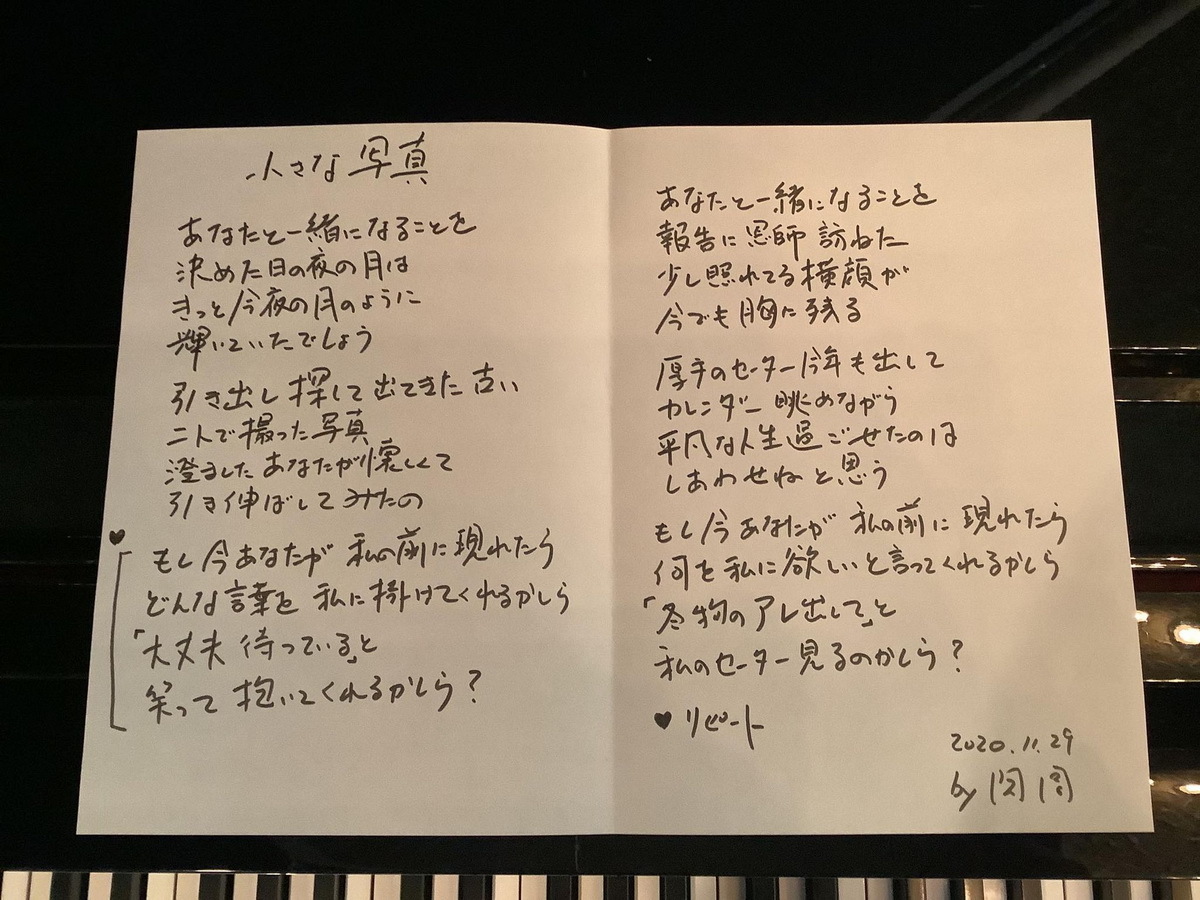 小さな写真
あなたと一緒になることを
決めた日の夜の月は
きっと今夜の月のように
輝いていたでしょう
引き出し探して出てきた古い
二人で撮った写真
澄ましたあなたが懐しくて
引き伸ばしてみたの
♥
もし今あなたが 私の前に現れたら
どんな言葉を 私に掛けてくれるかしら
「大丈夫 待っている」と
笑って 抱いてくれるかしら?
あなたと一緒になることを
報告に恩師 訪ねた
少し照れてる横顔が
今でも胸に残る
厚手のセーター今年も出して
カレンダー 眺めながら
平凡な人生過ごせたのは
しあわせねと思う
もし今あなたが 私の前に現れたら
何を私に欲しいと言ってくれるかしら
「冬物のアレ出して」と
私のセーター見るのかしら?
♥ リピート
2020.11.29
by